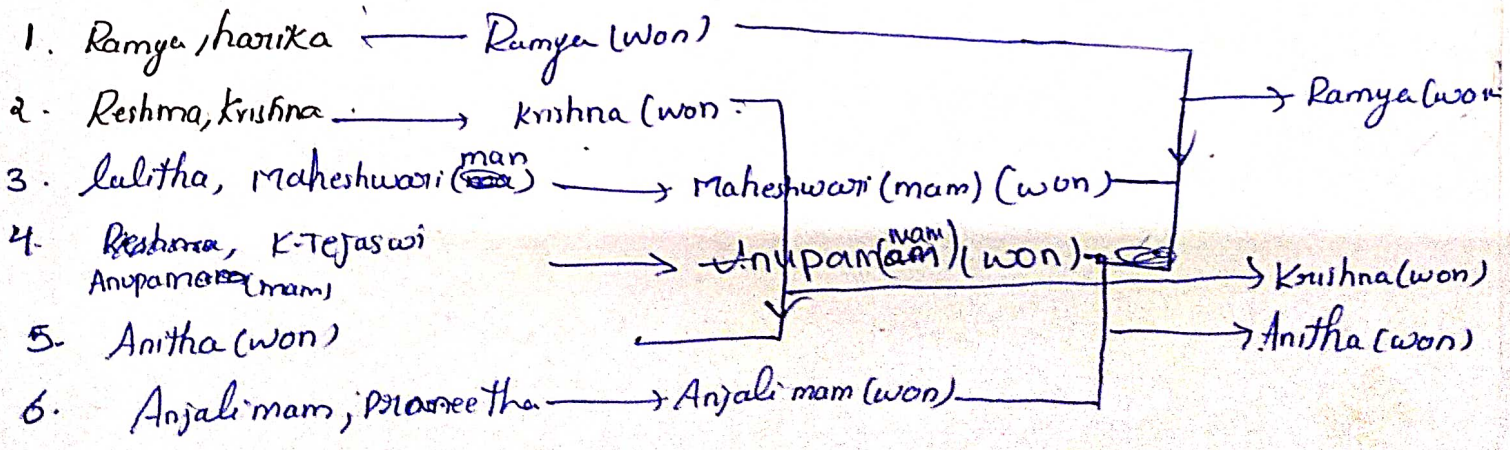 1. Ramya, harika Ramya (won) Ramya (won
2. Reshma, Krishna Krishna (won
3. lalitha, Maheshwari (mam) Maheshwari (mam) (won)
4. Reshma, K-Tejaswi
Anupama (mam) Anupam(mam) (won) Krishna (won)
5. Anitha (won) Anitha (won)
6. Anjali mam, Praneetha Anjali mam (won)